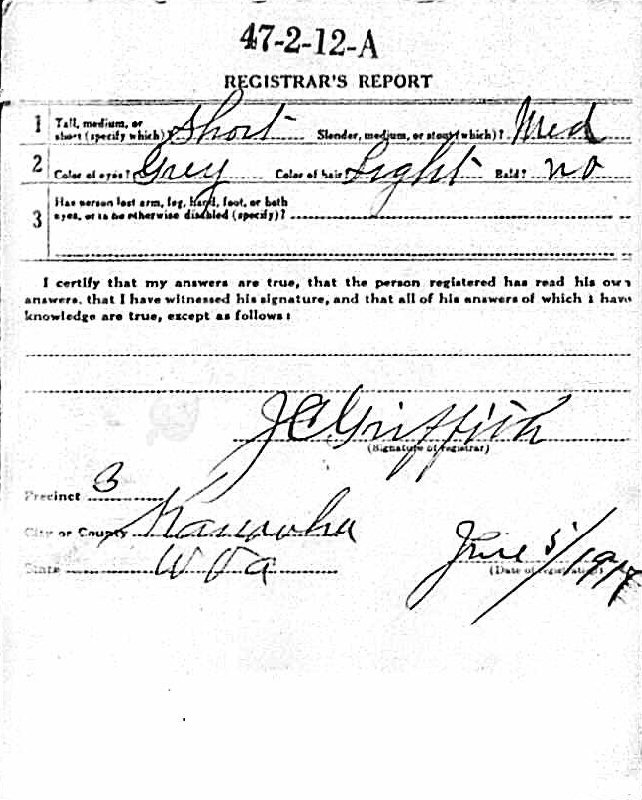 47-2-12-A
REGISTRAR'S REPORT
1 Tall, medium, or short (specify which)? Short Slender, medium, or stout (which)? Med
2 Color of eyes? Grey Color of hair? Light Bald? no
3 Has person lost arm, leg, hand, foot, or both
eyes, or is he otherwise disabled (specify)?
I certify that my answers are true, that the person registered has read his own
answers, that I have witnessed his signature, and that all of his answers of which I have
knowledge are true, except as follows:
J C Griffith
(Signature of registrar)
Precinct 3
City or County Kanawha
State W Va
June 5/1917
(Date of registration)